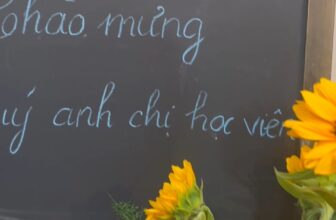 Chào mừng
uý anh chị học viên